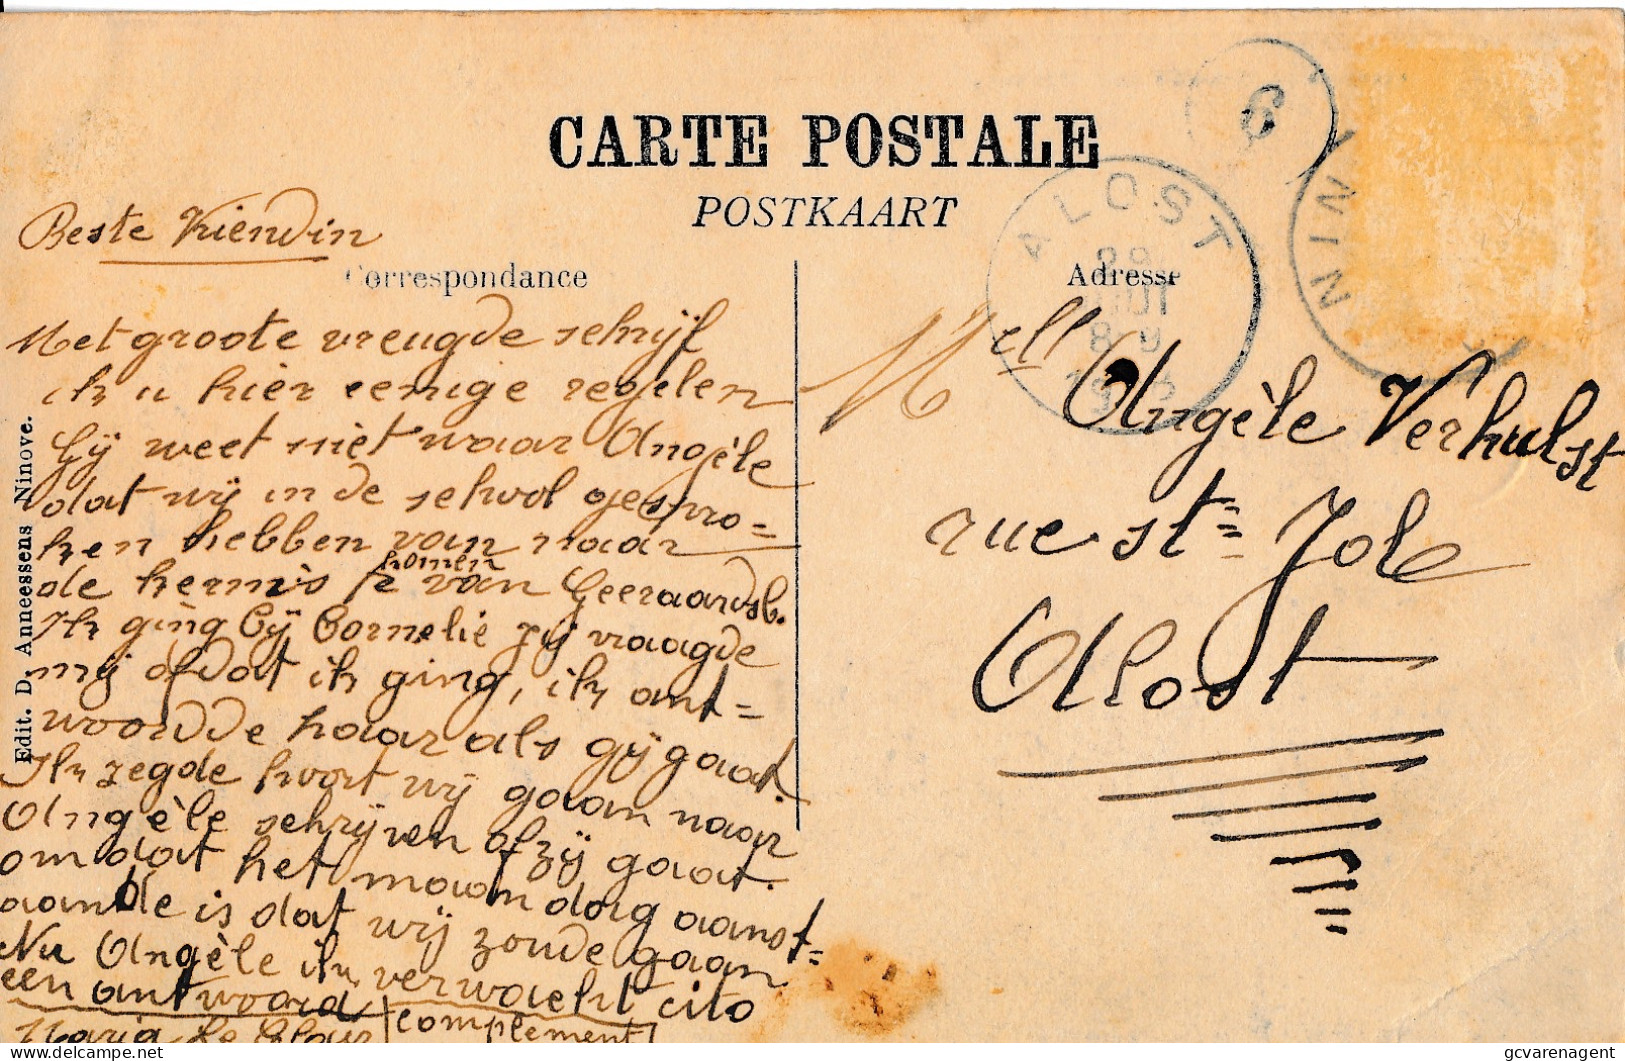 CARTE POSTALE
POSTKAART
Correspondance
Adresse
Edit. D. Anneessens Ninove.
ALOST
8-9
NIN
6
Beste Vriendin
Met groote vreugde schrijf
ik u hier eenige regelen
Gÿ weet niet waar Angèle
dat wÿ in de school gespro=
ken hebben van naar
de kermis te komen van Geeraardsb.
Ik ging bÿ Cornelie zÿ vraagde
mij of dat ik ging, ik ant=
woordde haar als gÿ gaat.
Ik zegde kwort wÿ gaan naar
Angèle schrijven of zÿ gaat.
om dat het maandag aanst=
aande is dat wÿ zoude gaan
Nu Angèle ik verwacht cito
een antwoord
complement
Maria
Mell Angèle Verhulst
rue st= Job
Alost
gcvarenagent